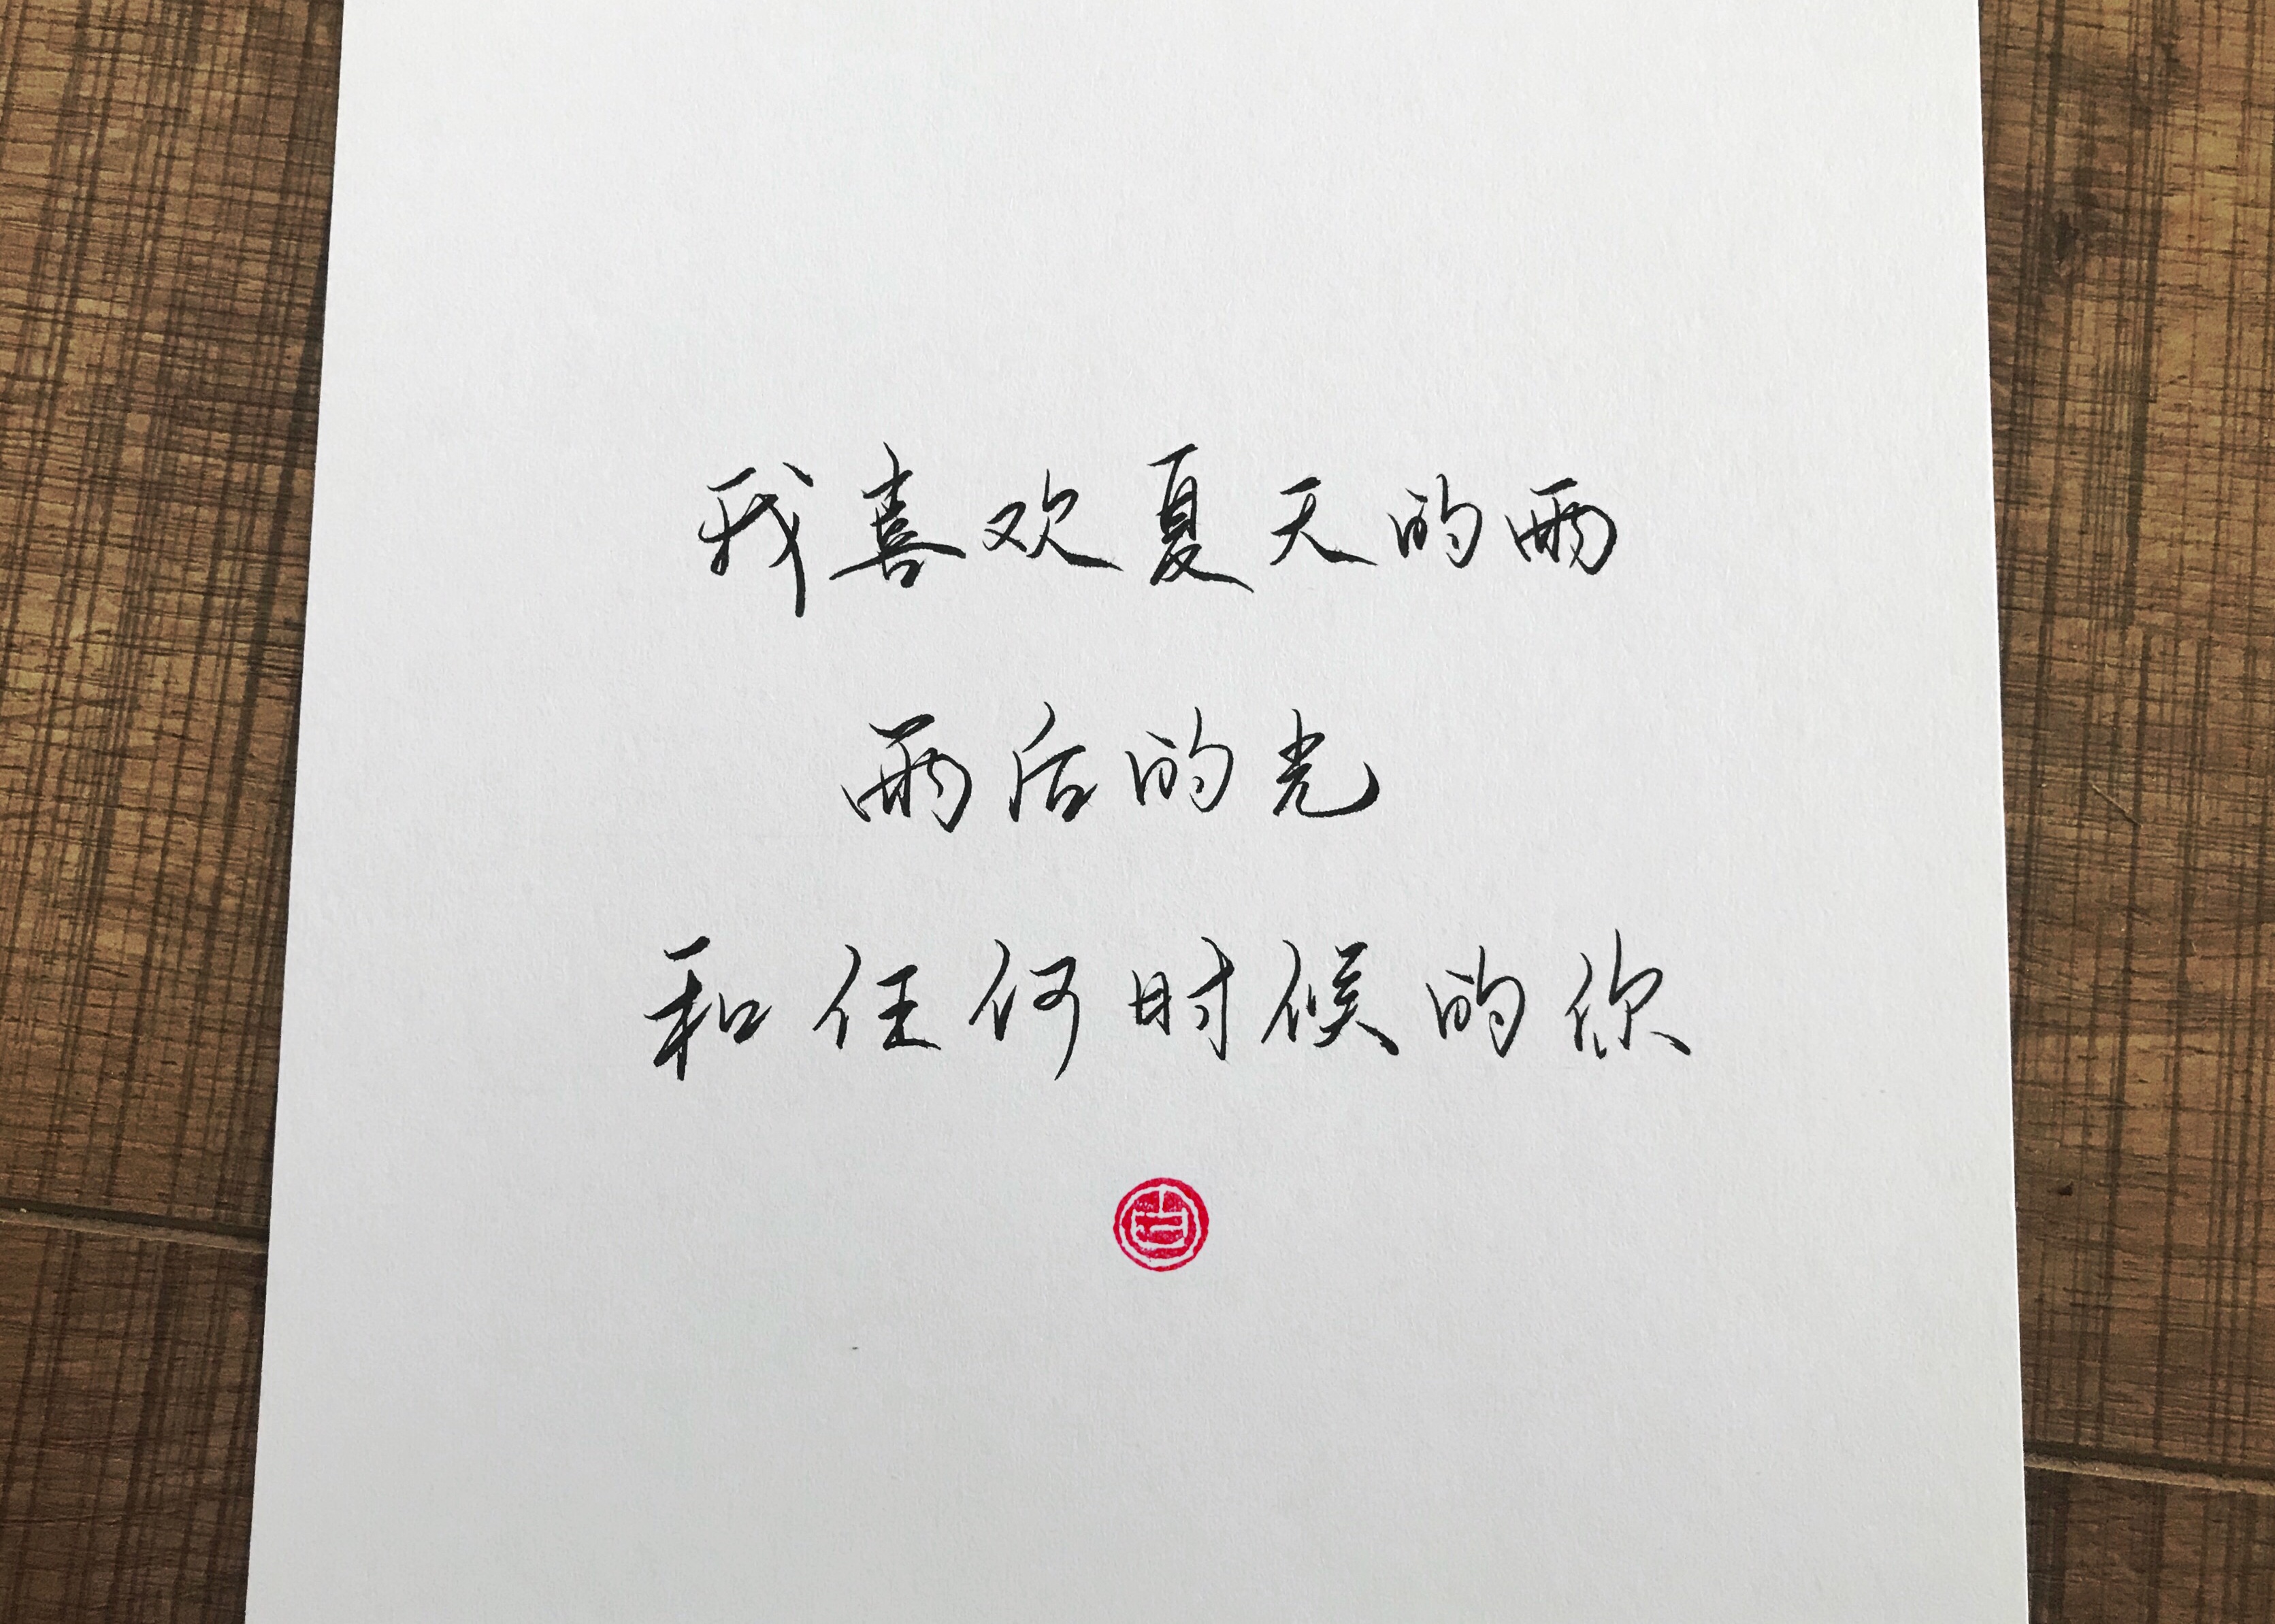 我喜欢夏天的雨
雨后的光
和任何时候的你